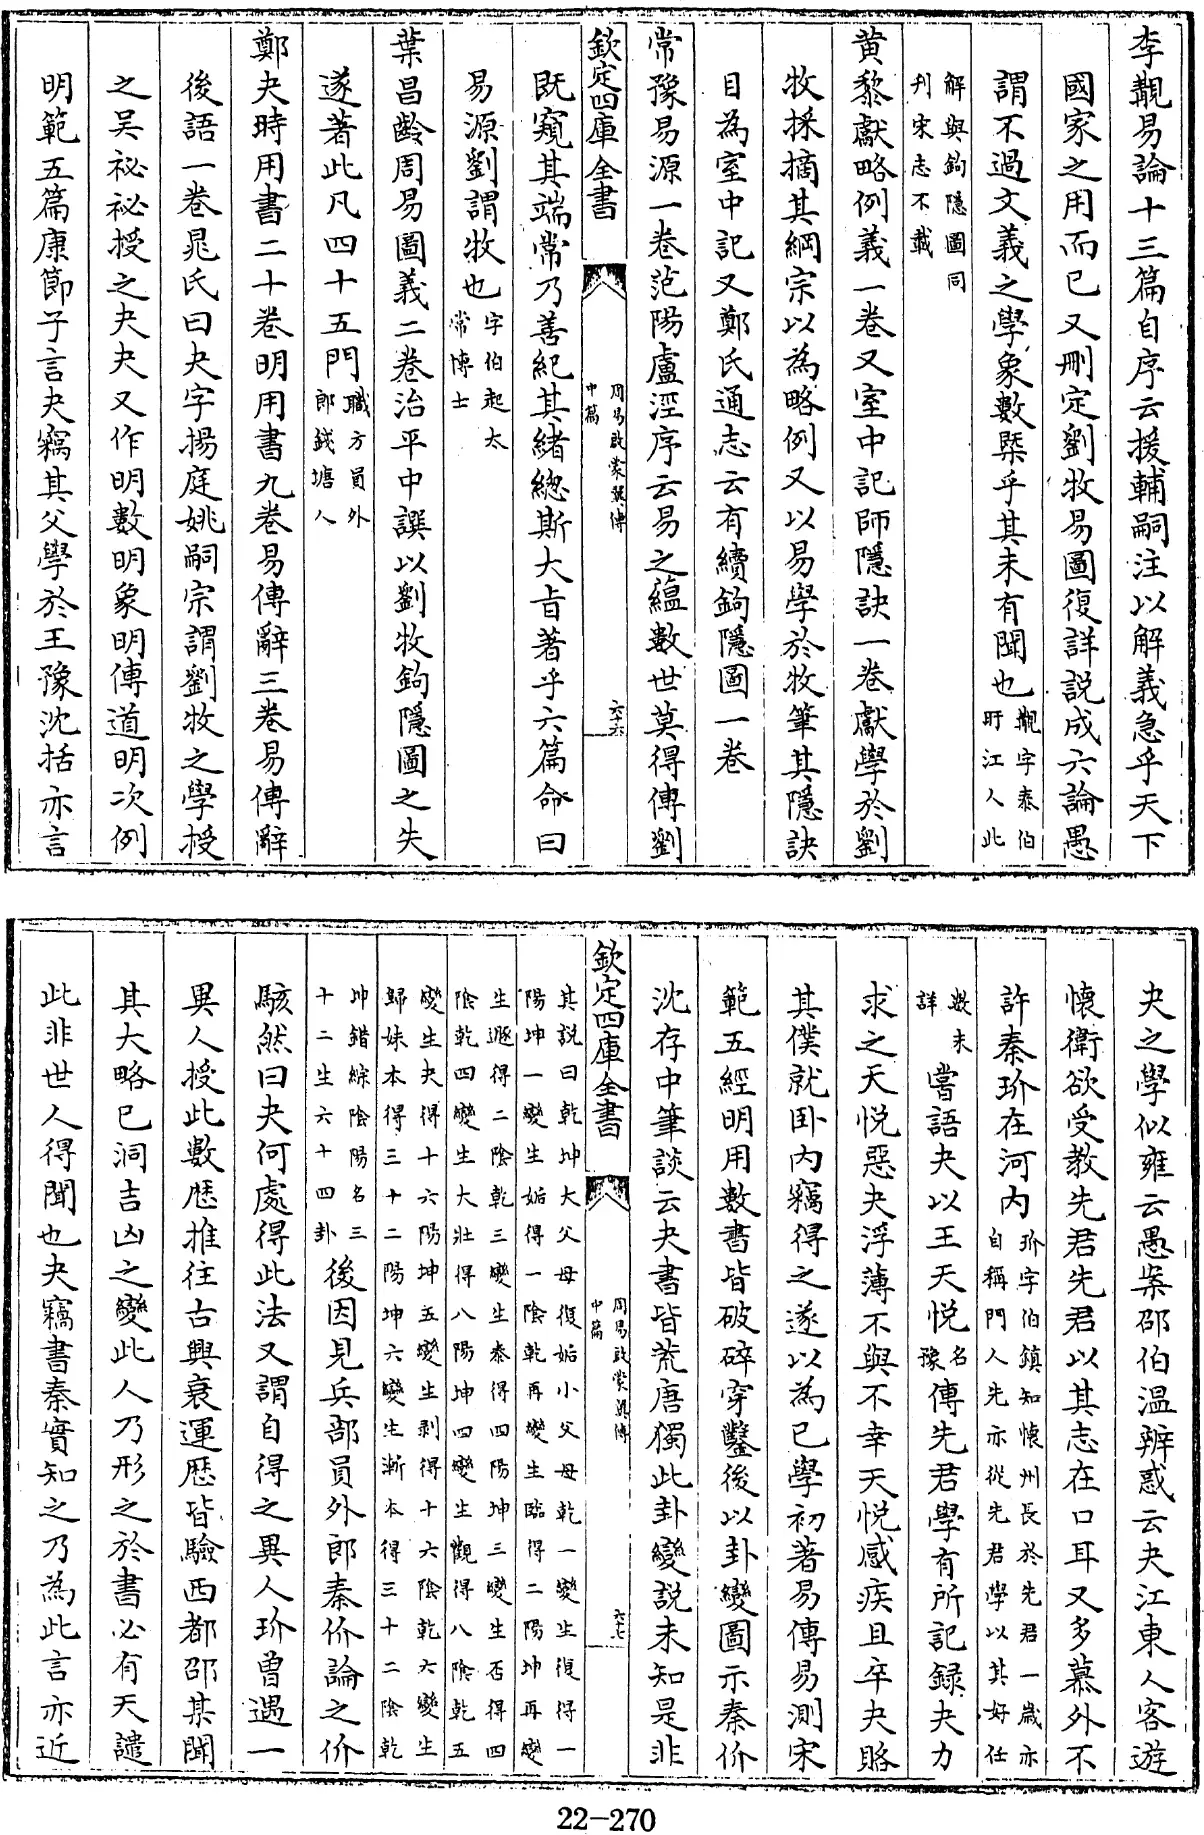 李覯易論十三篇自序云援輔嗣注以解義急乎天下
國家之用而已又刪定劉牧易圖復詳説成六論愚
謂不過文義之學象數槩乎其未有聞也覯字泰伯盱江人此
解與鉤隱圖同刋宋志不載
黄黎獻略例義一卷又室中記師隱訣一卷獻學於劉
牧採摘其綱宗以為略例又以易學於牧筆其隱訣
目為室中記又鄭氏通志云有續鉤隱圖一卷
常豫易源一卷范陽盧涇序云易之緼數世莫得傳劉
欽定四庫全書
周易啟蒙翼傳
中篇
六十六
既窺其端常乃善紀其緒總斯大旨著乎六篇命曰
易源劉謂牧也字伯起太常博士
葉昌齡周易圖義二卷治平中譔以劉牧鉤隱圖之失
遂著此凡四十五門職方員外郎錢塘人
鄭夬時用書二十卷明用書九卷易傳辭三卷易傳辭
後語一卷晁氏曰夬字揚庭姚嗣宗謂劉牧之學授
之吴祕祕授之夬夬又作明數明象明傳道明次例
明範五篇康節子言夬竊其父學於王豫沈括亦言
夬之學似雍云愚案邵伯温辨惑云夬江東人客遊
懷衛欲受教先君先君以其志在口耳又多慕外不
許秦玠在河内玠字伯鎮知懷州長於先君一歳亦自稱門人先亦從先君學以其好任
數未詳嘗語夬以王天悦名豫傳先君學有所記録夬力
求之天悦惡夬浮薄不與不幸天悦感疾且卒夬賂
其僕就卧内竊得之遂以為已學初著易傳易測宋
範五經明用數書皆破碎穿鑿後以卦變圖示秦价
沈存中筆談云夬書皆荒唐獨此卦變説未知是非
欽定四庫全書
周易啟蒙翼傳
中篇
六十七
其説曰乾坤大父母復姤小父母乾一變生復得一
陽坤一變生姤得一陰乾再變生臨得二陽坤再變
生遯得二陰乾三變生泰得四陽坤三變生否得四
陰乾四變生大壯得八陽坤四變生觀得八陰乾五
變生夬得十六陽坤五變生剥得十六陰乾六變生
歸妹本得三十二陽坤六變生漸本得三十二陰乾
坤錯綜陰陽名三
十二生六十四卦後因見兵部員外郎秦价論之价
駭然曰夬何處得此法又謂自得之異人玠曾遇一
異人授此數厯推往古興衰運厯皆驗西都邵某聞
其大略已洞吉凶之變此人乃形之於書必有天譴
此非世人得聞也夬竊書秦實知之乃為此言亦近
22-270